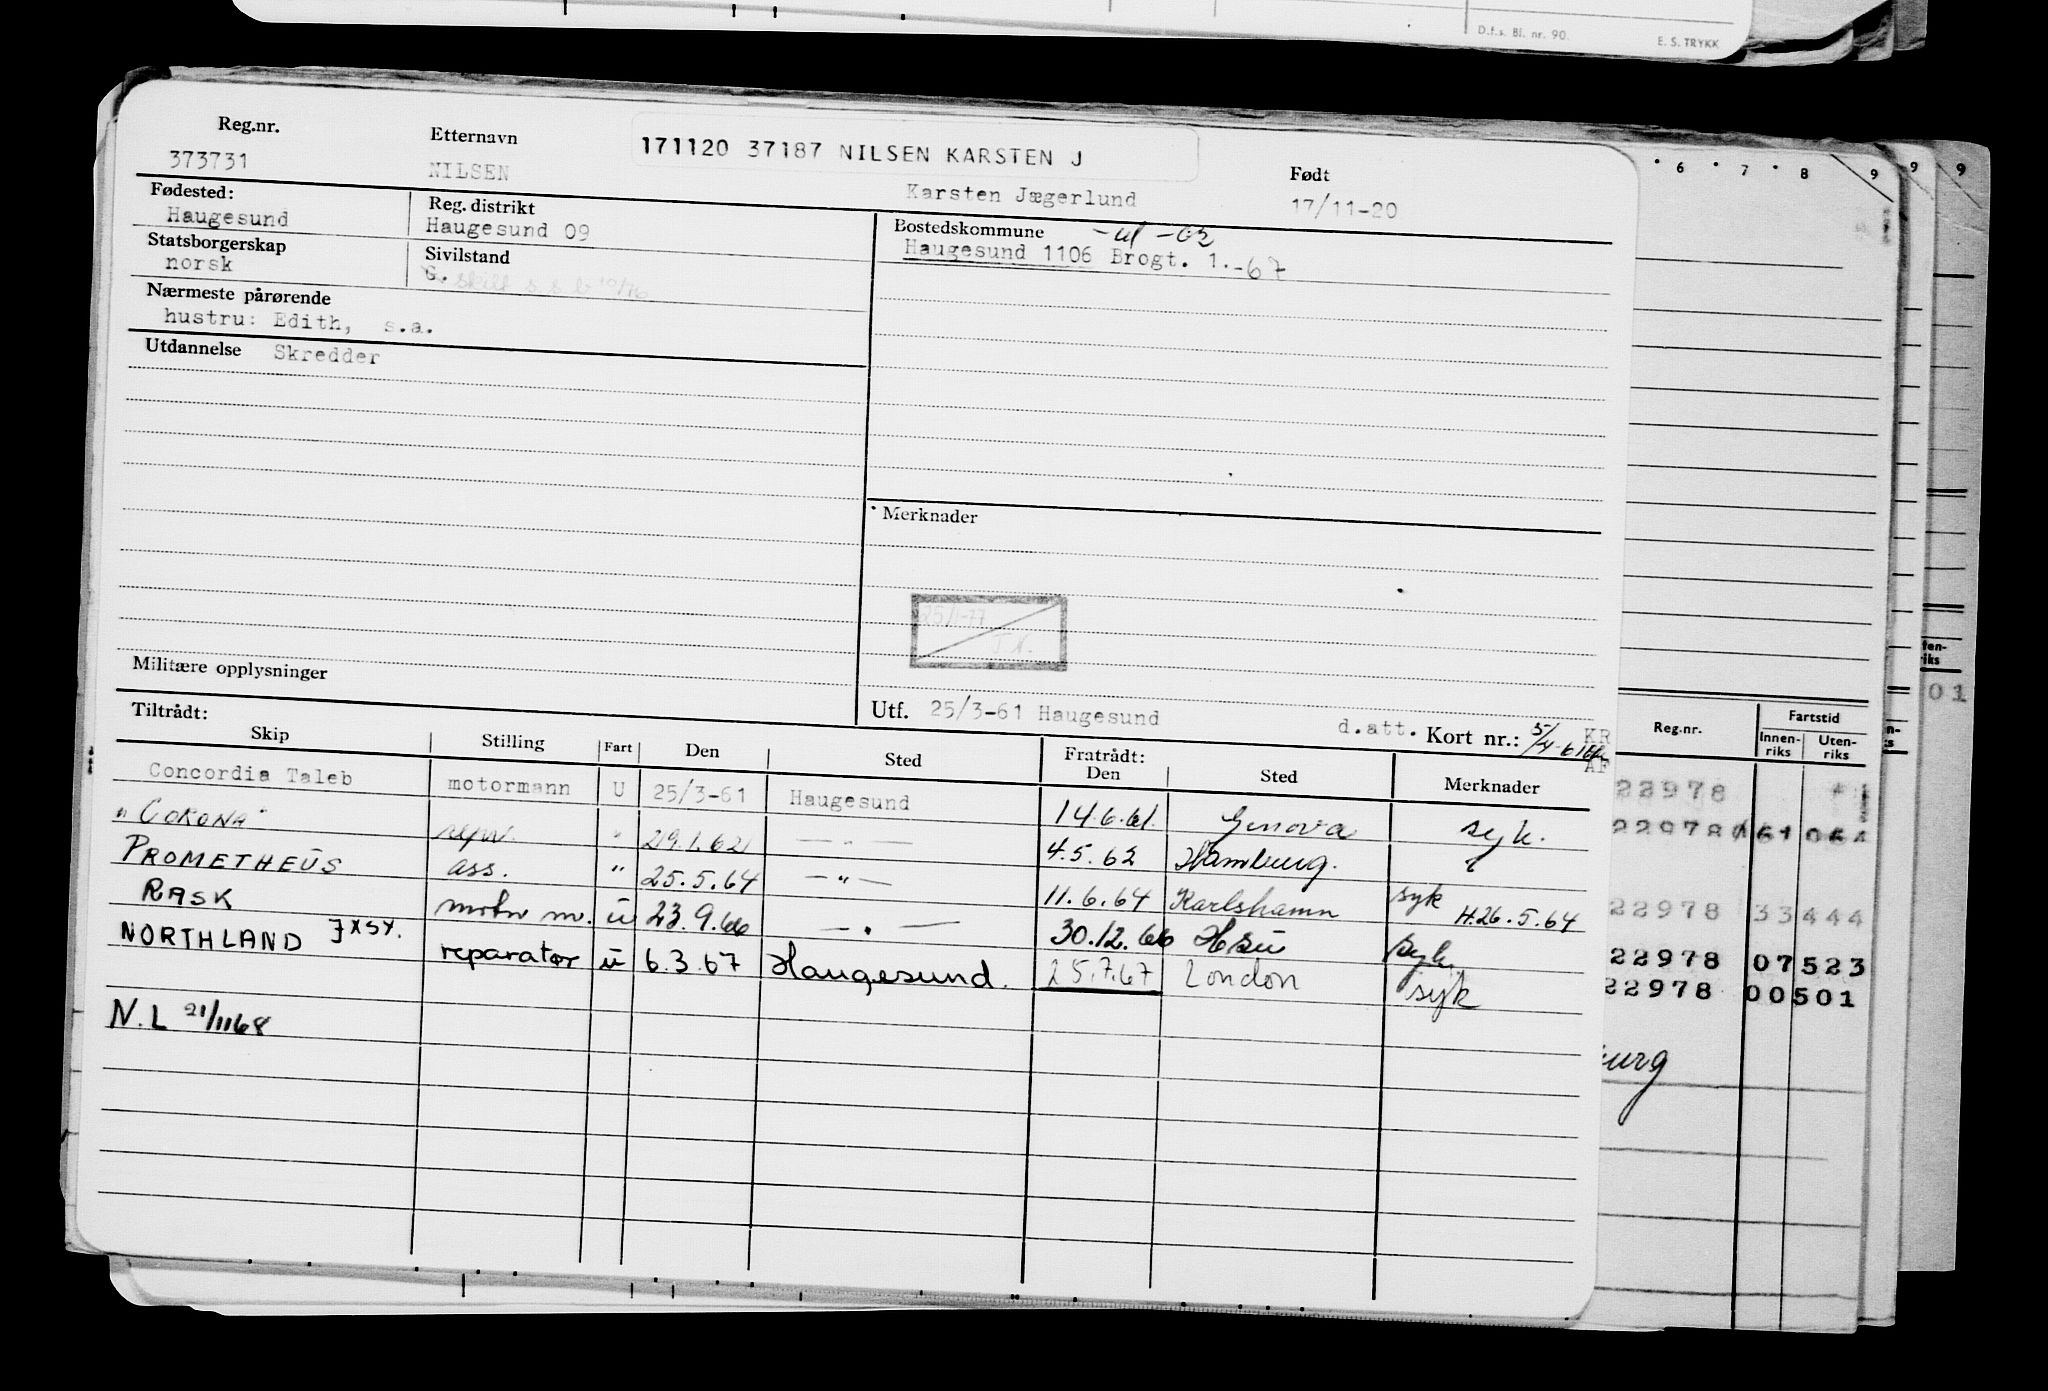 D.f.s. Bl. nr. 90. E. S. TRYKK
Reg.nr. Etternavn 171120 37187 NILSEN KARSTEN J Født
373731 NILSEN Karsten Jægerlund 17/11-20
Fødested: Reg. distrikt Bostedskommune -61 -62
Haugesund Haugesund 09 Haugesund 1106 Brogt. 1.-67
Statsborgerskap Sivilstand
norsk G. skilt
Nærmeste pårørende
hustru: Edith, s.a.
Utdannelse Skredder
Merknader
25/1-77
Militære opplysninger
Utf. 25/3-61 Haugesund d.att. Kort nr.: KR
AF
Tiltrådt: Fratrådt:
Skip Stilling Fart Den Sted Den Sted Merknader
Concordia Taleb motormann U 25/3-61 Haugesund 14.6.61. Genova syk.
"CORONA" repr. " 29.1.62 — " — 4.5.62 Hamburg.
PROMETHEUS ass. " 25.5.64 — " — 11.6.64 Karlshamn syk H.26.5.64
RASK motor m. ü 23.9.66 — " — 30.12.66 Hsu syk.
NORTHLAND JXSY. reparatør ü 6.3.67 Haugesund. 25.7.67 London syk
N.L 21/1168
6 7 8 9 9 9
Reg.nr. Fartstid
Innen-
riks Uten-
riks
22978
22978 61 064
22978 33 444
22978 07 523
22978 00 501
urg
ten-
riks
01
n-
s